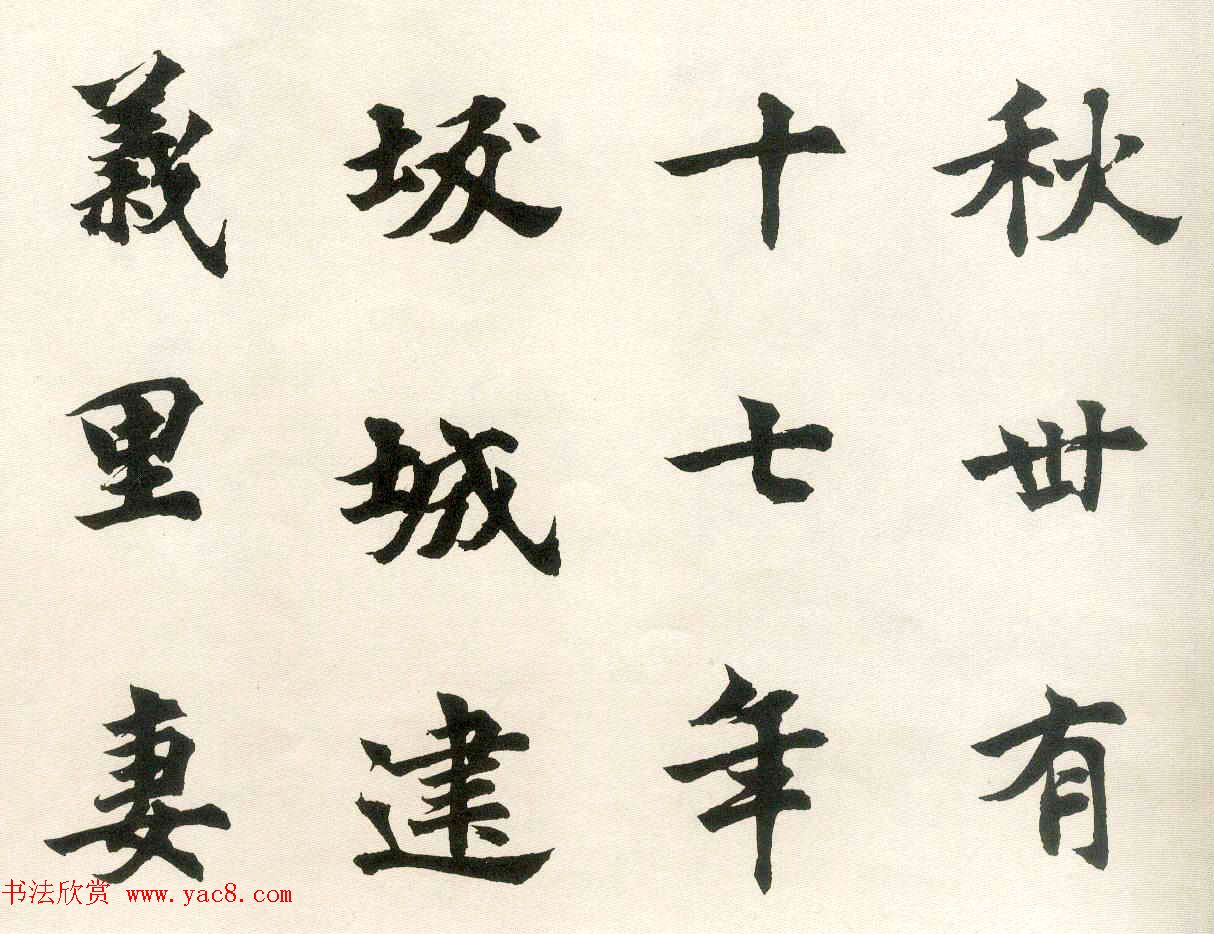 秋卅有
十七年
坂城建
義里妻
书法欣赏 www.yac8.com